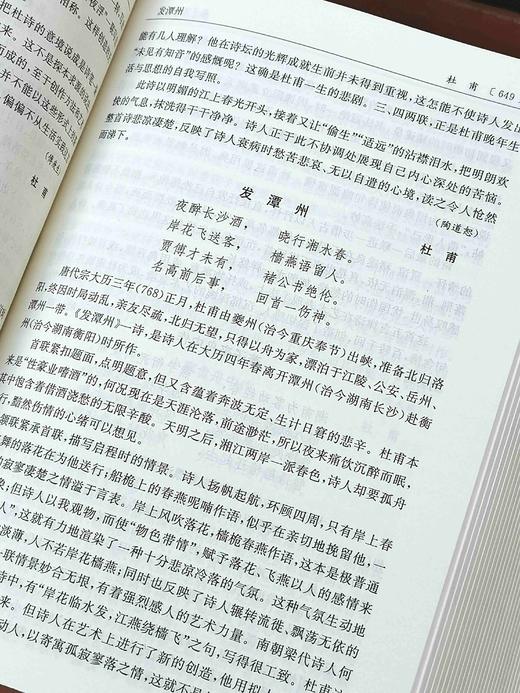 夜寻”
相称。这样创
把杜诗的意境说成
来。这不是探本求源的
而成的,至于创作方法的
不能以这些形
偏偏不从生活实
杜 甫
发潭州
杜 甫 〔649
能有几人理解?他在诗坛的光辉成就生前并未得到重视,这怎能不使诗人发出
“未见有知音”的感慨呢?这确是杜甫一生的悲剧。三、四两联,正是杜甫晚年生
活与思想的自我写照。
此诗以明媚的江上春光开头,接着又让“偷生”“适远”的沾襟泪水,把明朗欢
快的气息,抹洗得干干净净。诗人正于此不协调处展现自己内心深处的苦恼。
整首诗悲凉凄楚,反映了诗人衰病时愁苦悲哀、无以自遣的心境,读之令人怆然
而涕下。
(陶道恕)
发 潭 州
杜 甫
夜醉长沙酒, 晓行湘水春。
岸花飞送客, 樯燕语留人。
贾傅才未有, 褚公书绝伦。
名高前后事, 回首一伤神。
唐代宗大历三年(768)正月,杜甫由夔州(治今重庆奉节)出峡,准备北归洛
阳,终因时局动乱,亲友尽疏,北归无望,只得以舟为家,漂泊于江陵、公安、岳州、
潭州一带。《发潭州》一诗,是诗人在大历四年春离开潭州(治今湖南长沙)赴衡
州(治今湖南衡阳)时所作。
首联紧扣题面,点明题意,但又含蕴着奔波无定、生计日窘的悲辛。杜甫本
来是“性豪业嗜酒”的,何况现在是天涯沦落,前途渺茫,所以夜来痛饮沉醉而眠,
其中包含着借酒浇愁的无限辛酸。天明之后,湘江两岸一派春色,诗人却要孤舟
行,黯然伤情的心绪可以想见。
颔联紧承首联,描写启程时的情景。诗人扬帆起航,环顾四周,只有岸上春
舞的落花在为他送行;船桅上的春燕呢喃作语,似乎在亲切地挽留他,一
的寂寥凄楚之情溢于言表。岸上风吹落花,樯桅春燕作语,这本是极普通
象,但诗人以我观物,而使“物色带情”,赋予落花、飞燕以人的感情来
人”,这就有力地渲染了一种十分悲凉冷落的气氛。这种气氛生动地
淡薄,人不若岸花樯燕;同时也反映了诗人辗转流徙、飘荡无依的
一联情景妙合无垠,有着强烈感人的艺术力量。南朝梁代诗人何
诗中,有“岸花临水发,江燕绕樯飞”之句,写得很工致。杜甫
来。但诗人在艺术上进行了新的创造,他用拟人
动人,以寄寓孤寂寥落之情,这就不是